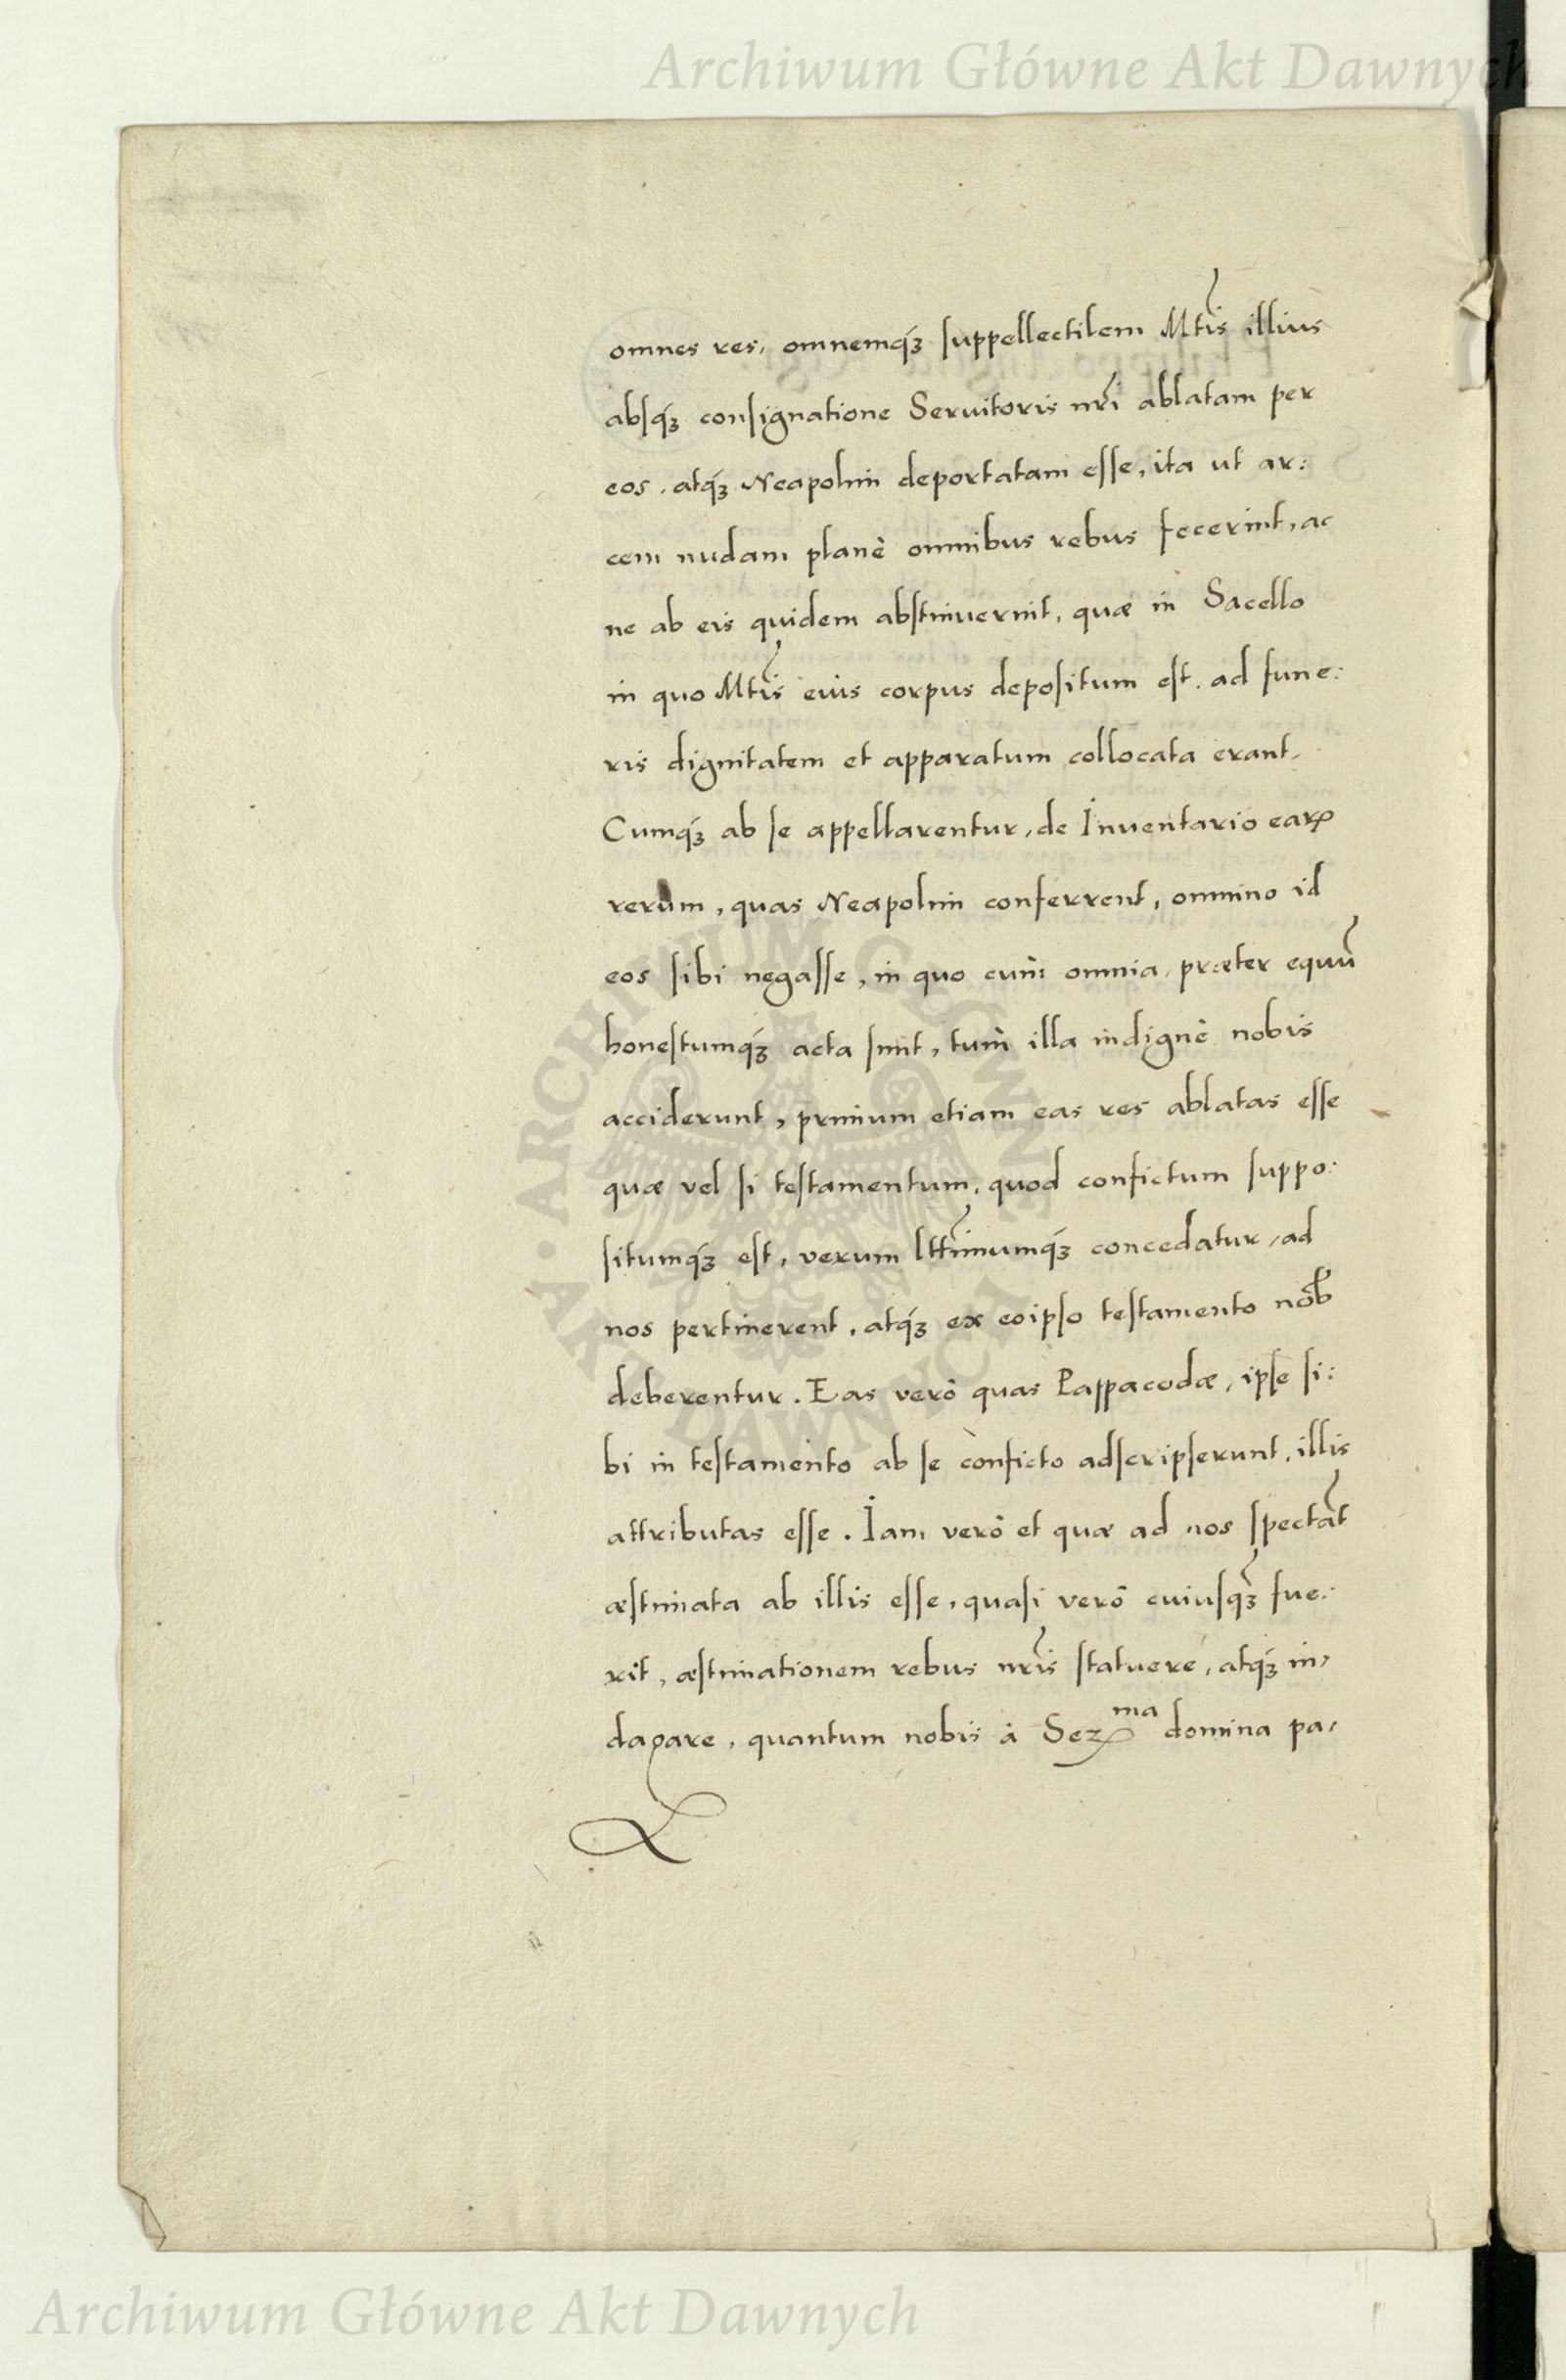 Archiwum Główne Akt Dawnych
omnes res, omnemq́ꝫ suppellectilem Mtis illius
absq́ꝫ consignatione Seruitoris nri ablatam per
eos, atq́ꝫ Neapolim deportatam esse, ita ut ar:
cem nudam planè omnibus rebus fecerint, ac
ne ab eis quidem abstinuerint, quæ in Sacello
in quo Mtis eius corpus depositum est, ad fune:
ris dignitatem et apparatum collocata erant,
Cumq́ꝫ ab se appellarentur, de Inuentario earꝝ
rerum, quas Neapolim conferrent, omnino id
eos sibi negasse, in quo cum̀ omnia, præter equū
honestumq́ꝫ acta sint, tum̀ illa indignè nobis
acciderunt, primum etiam eas res ablatas esse
quæ vel si testamentum, quod confictum suppo:
situmq́ꝫ est, verum lttimumq́ꝫ concedatur, ad
nos pertinerent, atq́ꝫ ex eoipso testamento nob
deberentur. Eas verò quas Pappacodæ, ipse si:
bi in testamento ab se conficto adscripserunt, illis
attributas esse. Iam verò et quæ ad nos spectāt
æstimata ab illis esse, quasi verò cuiusq́ꝫ fue:
rit, æstimationem rebus nris statuere, atq́ꝫ in,
dagare, quantum nobis à Ser^ma domina pa,
ARCHIWUM GŁÓWNE · AKT DAWNYCH ·
Archiwum Główne Akt Dawnych